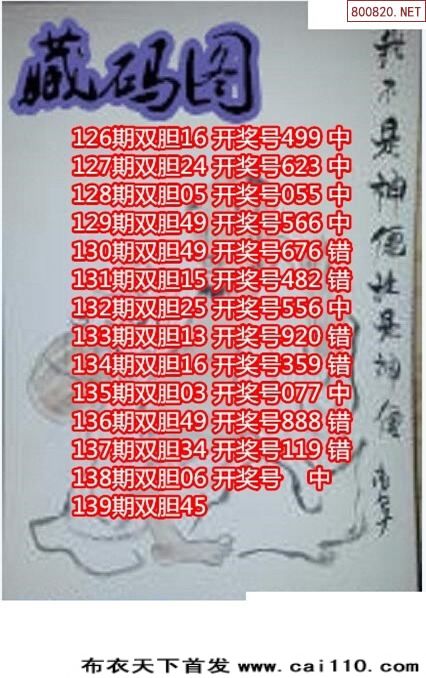 800820.NET
藏码图
126期双胆16 开奖号499 中
127期双胆24 开奖号623 中
128期双胆05 开奖号055 中
129期双胆49 开奖号566 中
130期双胆49 开奖号676 错
131期双胆15 开奖号482 错
132期双胆25 开奖号556 中
133期双胆13 开奖号920 错
134期双胆16 开奖号359 错
135期双胆03 开奖号077 中
136期双胆49 开奖号888 错
137期双胆34 开奖号119 错
138期双胆06 开奖号 中
139期双胆45
我不是神僊往是神僊
布衣天下首发 www.cai110.com